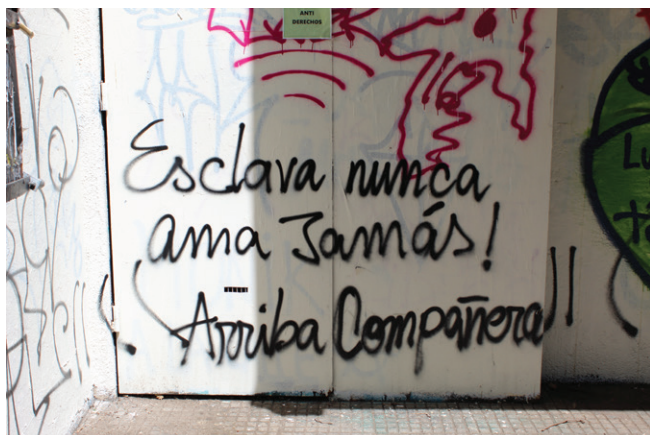 ANTI
DERECHOS
Esclava nunca
ama Jamás!
Arriba Compañera
Lu